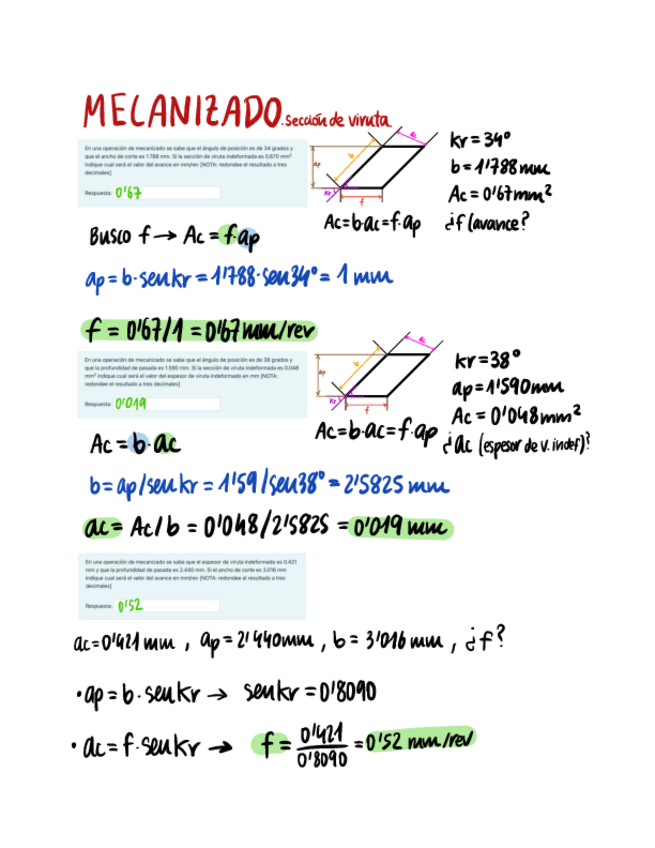 MECANIZADO. Sección de viruta
En una operación de mecanizado se sabe que el ángulo de posición es de 34 grados y
que el ancho de corte es 1.788 mm. Si la sección de viruta indeformada es 0.670 mm²
indique cual será el valor del avance en mm/rev [NOTA: redondee el resultado a tres
decimales]
Respuesta: 0'67
ac
b
ap
kr
f
Ac=b·ac=f·ap
kr = 34º
b = 1'788 mm
Ac = 0'67 mm²
¿f (avance?
Busco f → Ac = f·ap
ap = b·senkr = 1'788·sen34º = 1 mm
f = 0'67/1 = 0'67 mm/rev
En una operación de mecanizado se sabe que el ángulo de posición es de 38 grados y
que la profundidad de pasada es 1.590 mm. Si la sección de viruta indeformada es 0.048
mm² indique cual será el valor del espesor de viruta indeformado en mm [NOTA:
redondee el resultado a tres decimales]
Respuesta: 0'019
ac
b
ap
kr
f
Ac=b·ac=f·ap
kr = 38º
ap = 1'590mm
Ac = 0'048mm²
¿ac (espesor de v. indef)?
Ac = b·ac
b = ap/senkr = 1'59/sen38º = 2'5825 mm
ac = Ac/b = 0'048/2'5825 = 0'019 mm
En una operación de mecanizado se sabe que el espesor de viruta indeformado es 0.421
mm y que la profundidad de pasada es 2.440 mm. Si el ancho de corte es 3.016 mm
indique cual será el valor del avance en mm/rev [NOTA: redondee el resultado a tres
decimales]
Respuesta: 0'52
ac=0'421 mm , ap=2'440mm , b = 3'016 mm , ¿f?
·ap = b·senkr → senkr = 0'8090
·ac = f·senkr → f = 0'421/0'8090 = 0'52 mm/rev